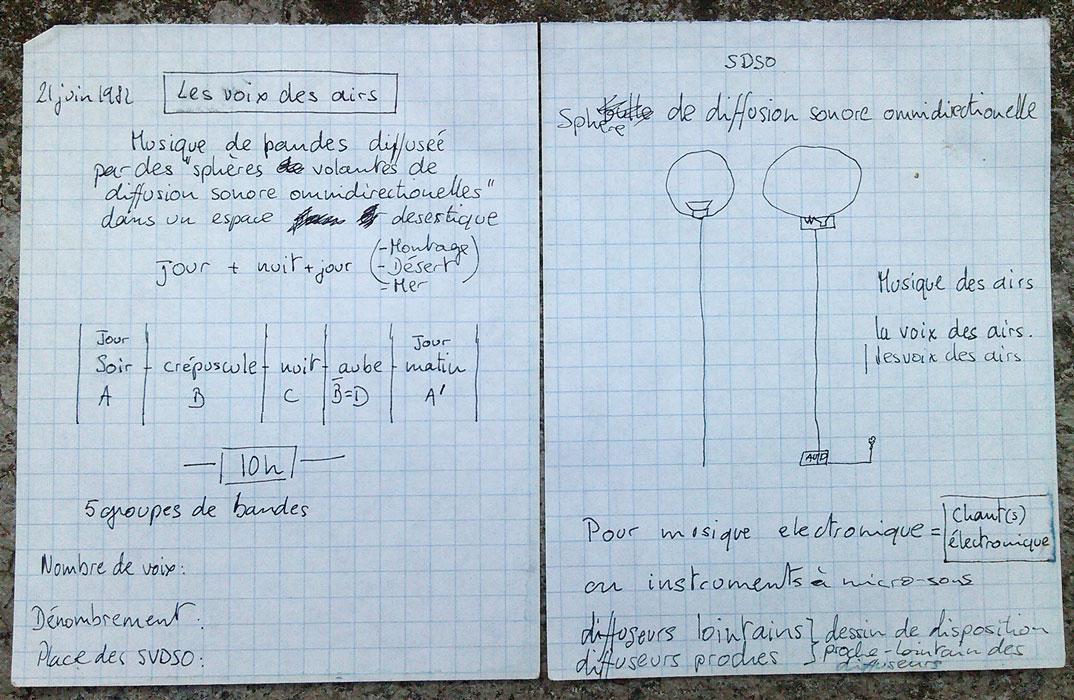 21 juin 1982
Les voix des airs
Musique de bandes diffuseé
par des "sphères volantes de
diffusion sonore omnidirectionelles"
dans un espace desertique
jour + nuit + jour
(- Montage
- Désert
- Mer)
Jour Jour
Soir - crépuscule - nuit - aube - matin
A B C B=D A'
10h
5 groupes de bandes
Nombre de voix:
Dénombrement:
Place des SVDSO:
SDSO
Sphère de diffusion sonore omnidirectionelle
Musique des airs
la voix des airs.
les voix des airs
Pour musique electronique = Chant(s)
électronique
ou instruments à micro-sons
diffuseurs lointains } dessin de disposition
diffuseurs proches } proche-lointain des
diffuseurs